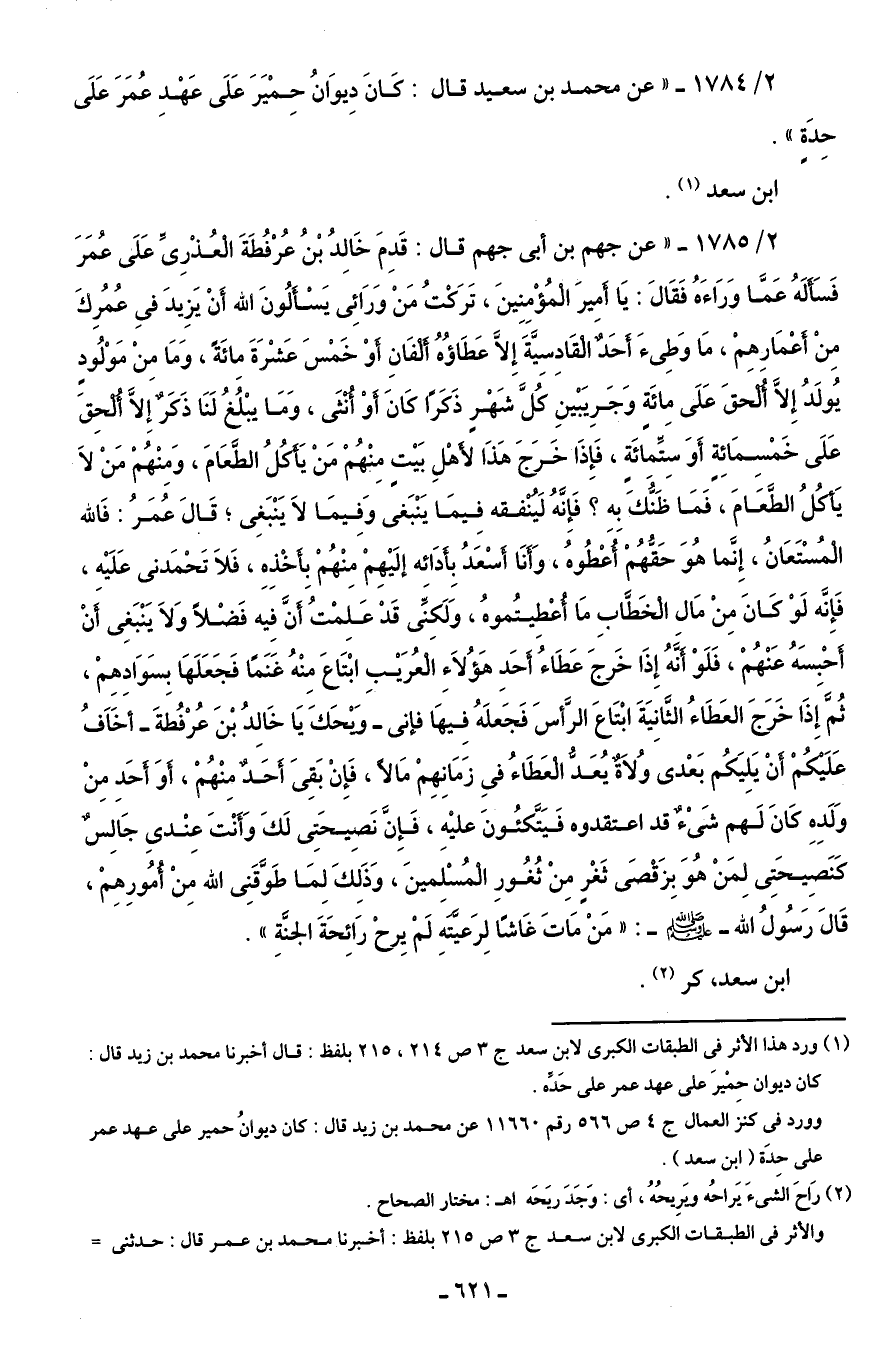 ٢/ ١٧٨٤ ـ « عن محمد بن سعيد قال : كَانَ دِيوَانُ حِمْيَرَ عَلَى عَهْدِ عُمَرَ عَلَى
حِدَةٍ » .
ابن سعد (١) .
٢/ ١٧٨٥ ـ « عن جهم بن أبى جهم قال : قَدِمَ خَالِدُ بْنُ عُرْفُطَةَ الْعُذْرِىِّ عَلَى عُمَرَ
فَسَأَلَهُ عَمَّا وَرَاءَهُ فَقَالَ : يَا أَمِيرَ الْمُؤْمِنِينَ ، تَرَكْتُ مَنْ وَرَائِى يَسْأَلُونَ الله أَنْ يَزِيدَ فِى عُمُرِكَ
مِنْ أَعْمَارِهِمْ ، مَا وَطِىءَ أَحَدٌ الْقَادِسِيَّةَ إِلاَّ عَطَاؤُهُ أَلْفَانِ أَوْ خَمْسَ عَشْرَةَ مِائَةً ، وَمَا مِنْ مَوْلُودٍ
يُولَدُ إِلاَّ أُلْحِقَ عَلَى مِائَةٍ وَجَرِيبَيْنِ كُلَّ شَهْرٍ ذَكَرًا كَانَ أَوْ أُنْثَى ، وَمَا يبْلُغُ لَنَا ذَكَرٌ إِلاَّ أُلْحِقَ
عَلَى خَمْسِمِائَةٍ أَوَ سِتِّمِائَةٍ ، فَإِذَا خَرَجَ هَذَا لأَهْلِ بَيْتٍ مِنْهُمْ مَنْ يَأكُلُ الطَّعَامَ ، وَمِنْهُمْ مَنْ لاَ
يَأكُلُ الطَّعَامَ ، فَمَا ظَنُّكَ بِهِ ؟ فَإِنَّهُ لَيُنْفِقه فِيمَا يَنْبَغِى وَفِيمَا لاَ يَنْبَغِى ؛ قَالَ عُمَرُ : فَالله
الْمُسْتَعَانُ ، إِنَّما هُوَ حَقُّهُمْ أُعْطُوهُ ، وَأَنَا أَسْعَدُ بِأَدَائِهِ إِلَيْهِمْ مِنْهُمْ بِأَخْذِهِ ، فَلاَ تَحْمَدنى عَلَيْهِ ،
فَإِنَّه لَوْ كَانَ مِنْ مَالِ الْخَطَّابِ مَا أُعْطِيتُموهُ ، وَلَكِنِّى قَدْ عَلِمْتُ أَنَّ فِيهِ فَضْلاً وَلاَ يَنْبَغِى أَنْ
أَحْبِسَهُ عَنْهُمْ ، فَلَوْ أَنَّهُ إِذَا خَرَجَ عَطَاءُ أَحَدِ هَؤُلاَءِ الْعُرَيْبِ ابْتَاعَ مِنْهُ غَنَمًا فَجَعَلَهَا بِسَوَادِهِمْ ،
ثُمَّ إِذَا خَرَجَ العَطَاءُ الثَّانِيَةَ ابْتَاعَ الرَّأسَ فَجَعَلَهُ فِيهَا فإنى ـ وَيْحَكَ يَا خَالِدُ بْنَ عُرْفُطةَ ـ أَخَافُ
عَلَيْكُمْ أَنْ يَلِيَكُم بَعْدِى وِلاَةٌ يُعَدُّ الْعَطَاءُ فِى زَمَانِهِمْ مَالاً ، فَإِنْ بَقِىَ أَحَدٌ مِنْهُمْ ، أَوَ أَحَدٍ مِنْ
وَلَدِهِ كَانَ لَهِم شَىْءٌ قد اعتقدوه فَيَتَّكِئُونَ عليْهِ ، فَإِنَّ نَصِيحَتِى لَكَ وَأَنْتَ عِنْدِى جَالِسٌ
كَنَصِيحَتِى لِمَنْ هُوَ بِزَقْصَى ثَغْرٍ مِنْ ثُغُورِ الْمُسْلِمِينَ ، وَذَلِكَ لِمَا طَوَّقَنِى الله مِنْ أُمُورِهِمْ ،
قَالَ رَسُولُ الله ـ ﷺ ـ : « مَنْ مَاتَ غَاشا لِرَعِيَّتِهِ لَمْ يرِحْ رَائِحَةَ الجنَّةِ » .
ابن سعد، كر (٢) .
(١) ورد هذا الأثر فى الطبقات الكبرى لابن سعد ج ٣ ص ٢١٤ ، ٢١٥ بلفظ : قال أخبرنا محمد بن زيد قال :
كان ديوان حِمْيرَ على عهد عمر على حَدِّه .
وورد فى كنز العمال ج ٤ ص ٥٦٦ رقم ١١٦٦٠ عن محمد بن زيد قال : كان ديوانُ حمير على عهد عمر
على حِدَة ( ابن سعد ) .
(٢) رَاحَ الشىءَ يَرَاحُه ويَرِيحُهُ ، أى : وَجَدَ رِيَحَه اهـ : مختار الصحاح .
والأثر فى الطبقات الكبرى لابن سعد ج ٣ ص ٢١٥ بلفظ : أخبرنا محمد بن عمر قال : حدثنى =
ـ ٦٢١ ـ